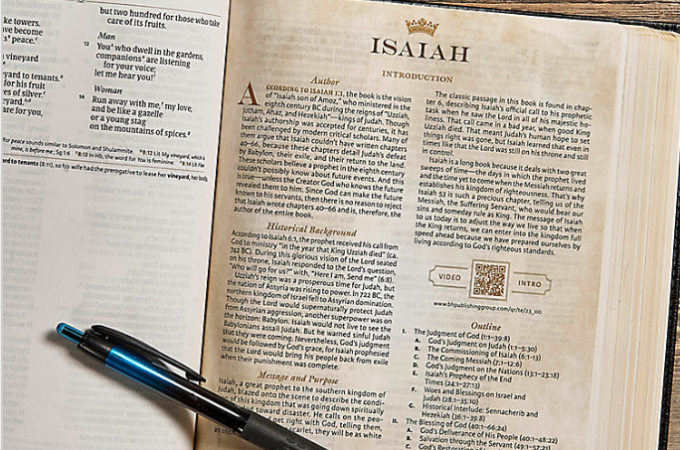 ke towers.
ve become
s' peace.
vineyard
yard to tenants.
are for his
es of silver.
yard.
for you,
but two hundred for those who take
care of its fruits.
Man
13 You who dwell in the gardens,
companions are listening
for your voice;
let me hear you!
Woman
14 Run away with me, my love,
and be like a gazelle
or a young stag
on the mountains of spices.
for peace sounds similar to Solomon and Shulammite. 8:12 Lit My vineyard, which is
mine, is before me; Sg 1:6 8:13 In Hb, the word for You is feminine 8:14 Lit Flee
ard to tenants (8:11), so his wife had the prerogative to lease her vineyard, her body,
ISAIAH
INTRODUCTION
Author
ACCORDING TO ISAIAH 1:1, the book is the vision
of "Isaiah son of Amoz," who ministered in the
eighth century BC during the reigns of "Uzziah,
Jotham, Ahaz, and Hezekiah"—kings of Judah. Though
Isaiah's authorship was accepted for centuries, it has
been challenged by modern critical scholars. Many of
them argue that Isaiah couldn't have written chapters
40–66, because these chapters detail Judah's defeat
by Babylon, their exile, and their return to the land.
These scholars believe a prophet in the eighth century
couldn't possibly know about future events. And this
is true—unless the Creator God who knows the future
revealed them to him. Since God can make the future
known to his servants, then there is no reason to reject
that Isaiah wrote chapters 40–66 and is, therefore, the
author of the entire book.
Historical Background
According to Isaiah 6:1, the prophet received his call from
God to ministry "in the year that King Uzziah died" (ca.
742 BC). During this glorious vision of the Lord seated
on his throne, Isaiah responded to the Lord's question,
"Who will go for us?" with, "Here I am. Send me" (6:8).
Uzziah's reign was a prosperous time for Judah, but
the nation of Assyria was rising to power. In 722 BC, the
northern kingdom of Israel fell to Assyrian domination.
Though the Lord would supernaturally protect Judah
from Assyrian aggression, another superpower was on
the horizon: Babylon. Isaiah would not live to see the
Babylonians assail Judah. But he warned sinful Judah
that they were coming. Nevertheless, God's judgment
would be followed by God's grace, for Isaiah prophesied
that the Lord would bring his people back from exile
when their punishment was complete.
Message and Purpose
Isaiah, a great prophet to the southern kingdom of
Judah, blazed onto the scene to describe the condi-
of this kingdom that was going down spiritually
toward disaster. He calls on the peo-
get right with God, telling them,
scarlet, they will be as white
The classic passage in this book is found in chap-
ter 6, describing Isaiah's official call to his prophetic
task when he saw the Lord in all of his majestic ho-
liness. That call came in a bad year, when good King
Uzziah died. That meant Judah's human hope to set
things right was gone, but Isaiah learned that even in
times like that the Lord was still on his throne and still
in control.
Isaiah is a long book because it deals with two great
sweeps of time—the days in which the prophet lived
and the time yet to come when the Messiah returns and
establishes his kingdom of righteousness. That's why
Isaiah 53 is such a precious chapter, telling us of the
Messiah, the Suffering Servant, who would bear our
sins and someday rule as King. The message of Isaiah
to us today is to adjust the way we live so that when
the King returns, we can enter into the kingdom full
speed ahead because we have prepared ourselves by
living according to God's righteous standards.
VIDEO INTRO
www.bhpublishinggroup.com/qr/te/23_00
Outline
I. The Judgment of God (1:1–39:8)
A. God's Judgment on Judah (1:1–5:30)
B. The Commissioning of Isaiah (6:1–13)
C. The Coming Messiah (7:1–12:6)
D. God's Judgment on the Nations (13:1–23:18)
E. Isaiah's Prophecy of the End
Times (24:1–27:13)
F. Woes and Blessings on Israel and
Judah (28:1–35:10)
G. Historical Interlude: Sennacherib and
Hezekiah (36:1–39:8)
II. The Blessing of God (40:1–66:24)
A. God's Deliverance of His People (40:1–48:22)
B. Salvation through the Servant (49:1–57:21)